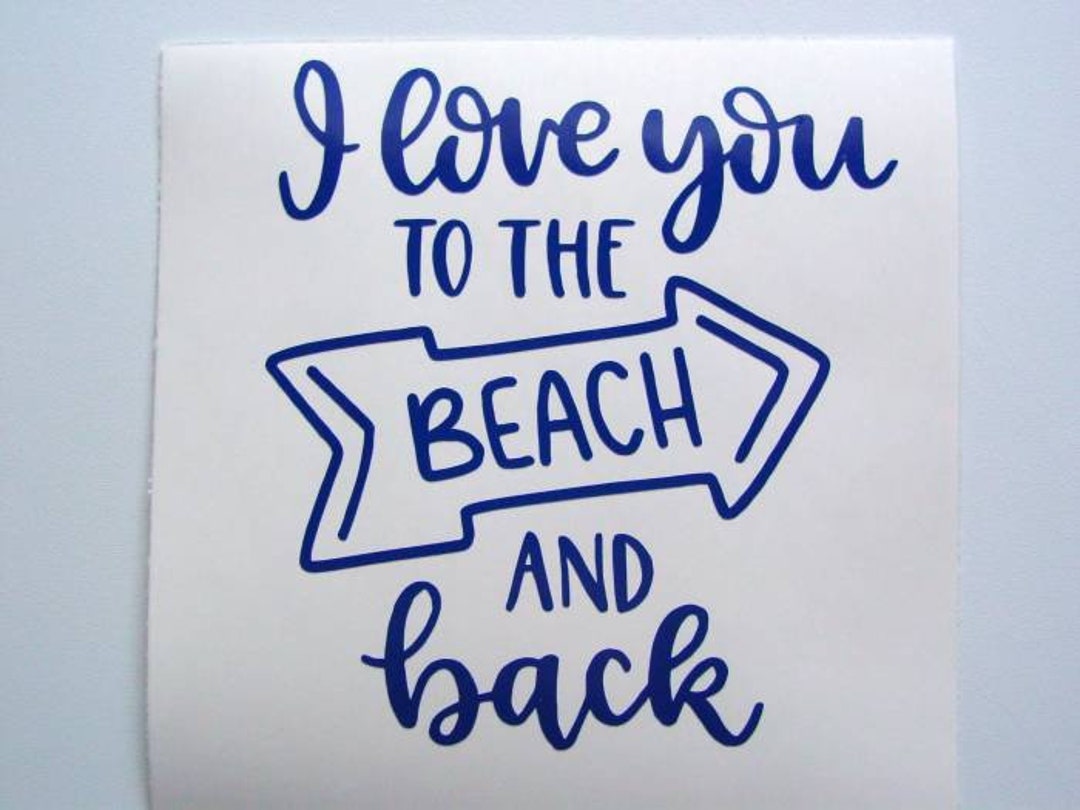 I love you
TO THE
BEACH
AND
back